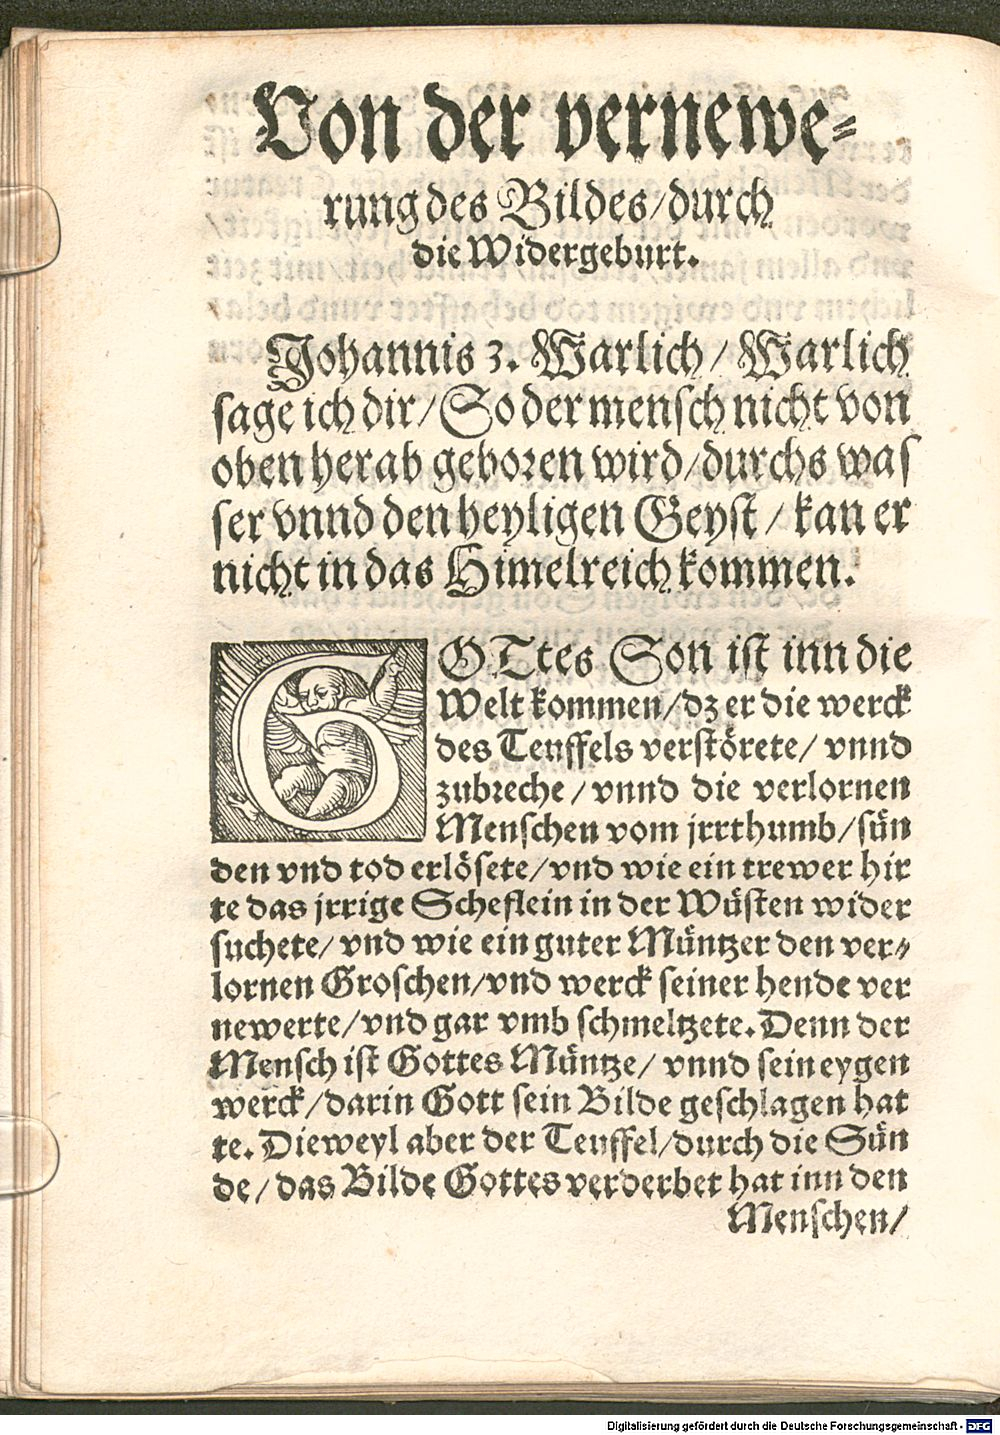 Von der vernewe⸗
rung des Bildes/durch
die Widergeburt.
Johannis 3. Warlich/ Warlich
sage ich dir/ So der mensch nicht von
oben herab geboren wird/durchs was
ser vnnd den heyligen Geyst/ kan er
nicht in das Himelreich kommen.
GOTtes Son ist inn die
Welt kommen/dz er die werck
des Teuffels verstörete/ vnnd
zubreche/ vnnd die verlornen
Menschen vom jrrthumb/sün
den vnd tod erlösete/vnd wie ein trewer hir
te das jrrige Scheflein in der Wüsten wider
suchete/ vnd wie ein guter Müntzer den ver⸗
lornen Groschen/vnd werck seiner hende ver
newerte/vnd gar vmb schmeltzete. Denn der
Mensch ist Gottes Müntze/ vnnd sein eygen
werck/darin Gott sein Bilde geschlagen hat
te. Dieweyl aber der Teuffel/durch die Sün
de/das Bilde Gottes verderbet hat inn den
Menschen/
Digitalisierung gefördert durch die Deutsche Forschungsgemeinschaft - DFG